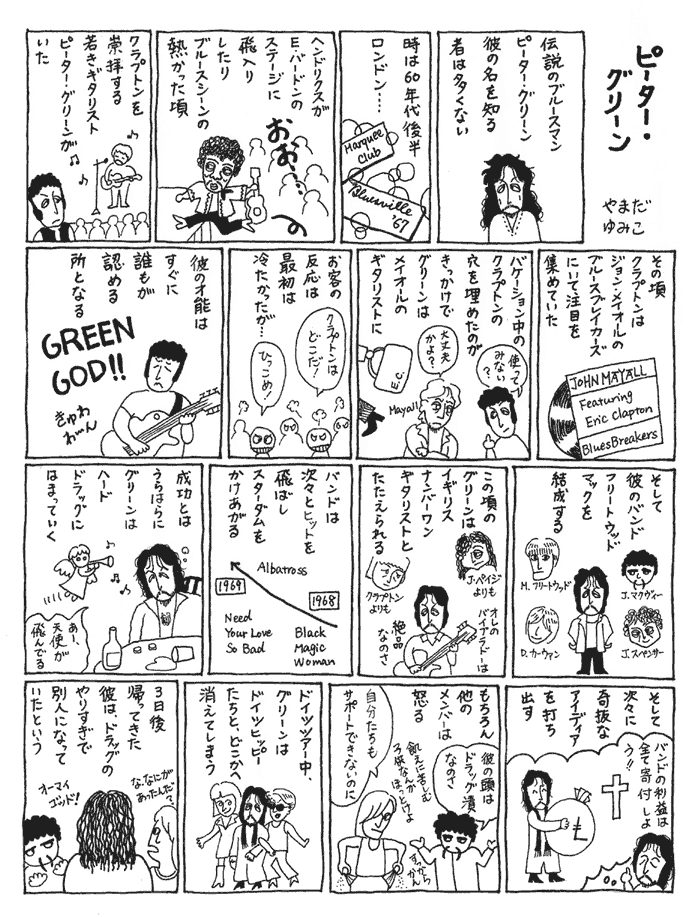 ピーター・
グリーン
やまだ
ゆみこ
伝説のブルースマン
ピーター・グリーン
彼の名を知る
者は多くない
時は60年代後半
ロンドン‥‥
Marquee
Club
Bluesville
'67
ヘンドリクスが
E.バードンの
ステージに
飛入り
したり
ブルースシーンの
熱かった頃
おお…
クラプトンを
崇拝する
若きギタリスト
ピーター・グリーンが
いた
その頃
クラプトンは
ジョン・メイオルの
ブルースブレイカーズ
にいて注目を
集めていた
JOHN MAYALL
Featuring
Eric Clapton
BluesBreakers
バケーション中の
クラプトンの
穴を埋めたのが
きっかけで
グリーンは
メイオルの
ギタリストに
使って
みない
?
大丈夫
かよ?
Mayall
E.C.
お客の
反応は
最初は
冷たかったが…
クラプトンは
どこだ!
ひっこめ!
彼の才能は
すぐに
誰もが
認める
所となる
GREEN
GOD!!
きゅわ
わーん
そして
彼のバンド
フリートウッド
マックを
結成する
M.フリートウッド
J.マクヴィー
D.カーワァン
J.スペンサー
この頃の
グリーンは
イギリス
ナンバーワン
ギタリストと
たたえられる
J.ペイジ
よりも
クラプトン
よりも
オレの
バイブラートは
絶品
なのさ
バンドは
次々とヒットを
飛ばし
スターダムを
かけあがる
Albatross
1969
1968
Need
Your Love
So Bad
Black
Magic
Woman
成功とは
うらはらに
グリーンは
ハード
ドラッグに
はまっていく
あー、
天使が
飛んでる
そして
次々に
奇抜な
アイディア
を打ち
出す
バンドの利益は
全て寄付しよ
う!!
£
もちろん
他の
メンバーは
怒る
彼の頭は
ドラッグ漬
なのさ
飢えに苦しむ
子供なんか
ほっとけよ
自分たちも
サポートできないのに
すっから
かん
ドイツツアー中、
グリーンは
ドイツヒッピー
たちと、どこかへ
消えてしまう
3日後
帰ってきた
彼は、ドラッグの
やりすぎで
別人になって
いたという
な、なにが
あったんだ?
オーマイ
ゴッド!